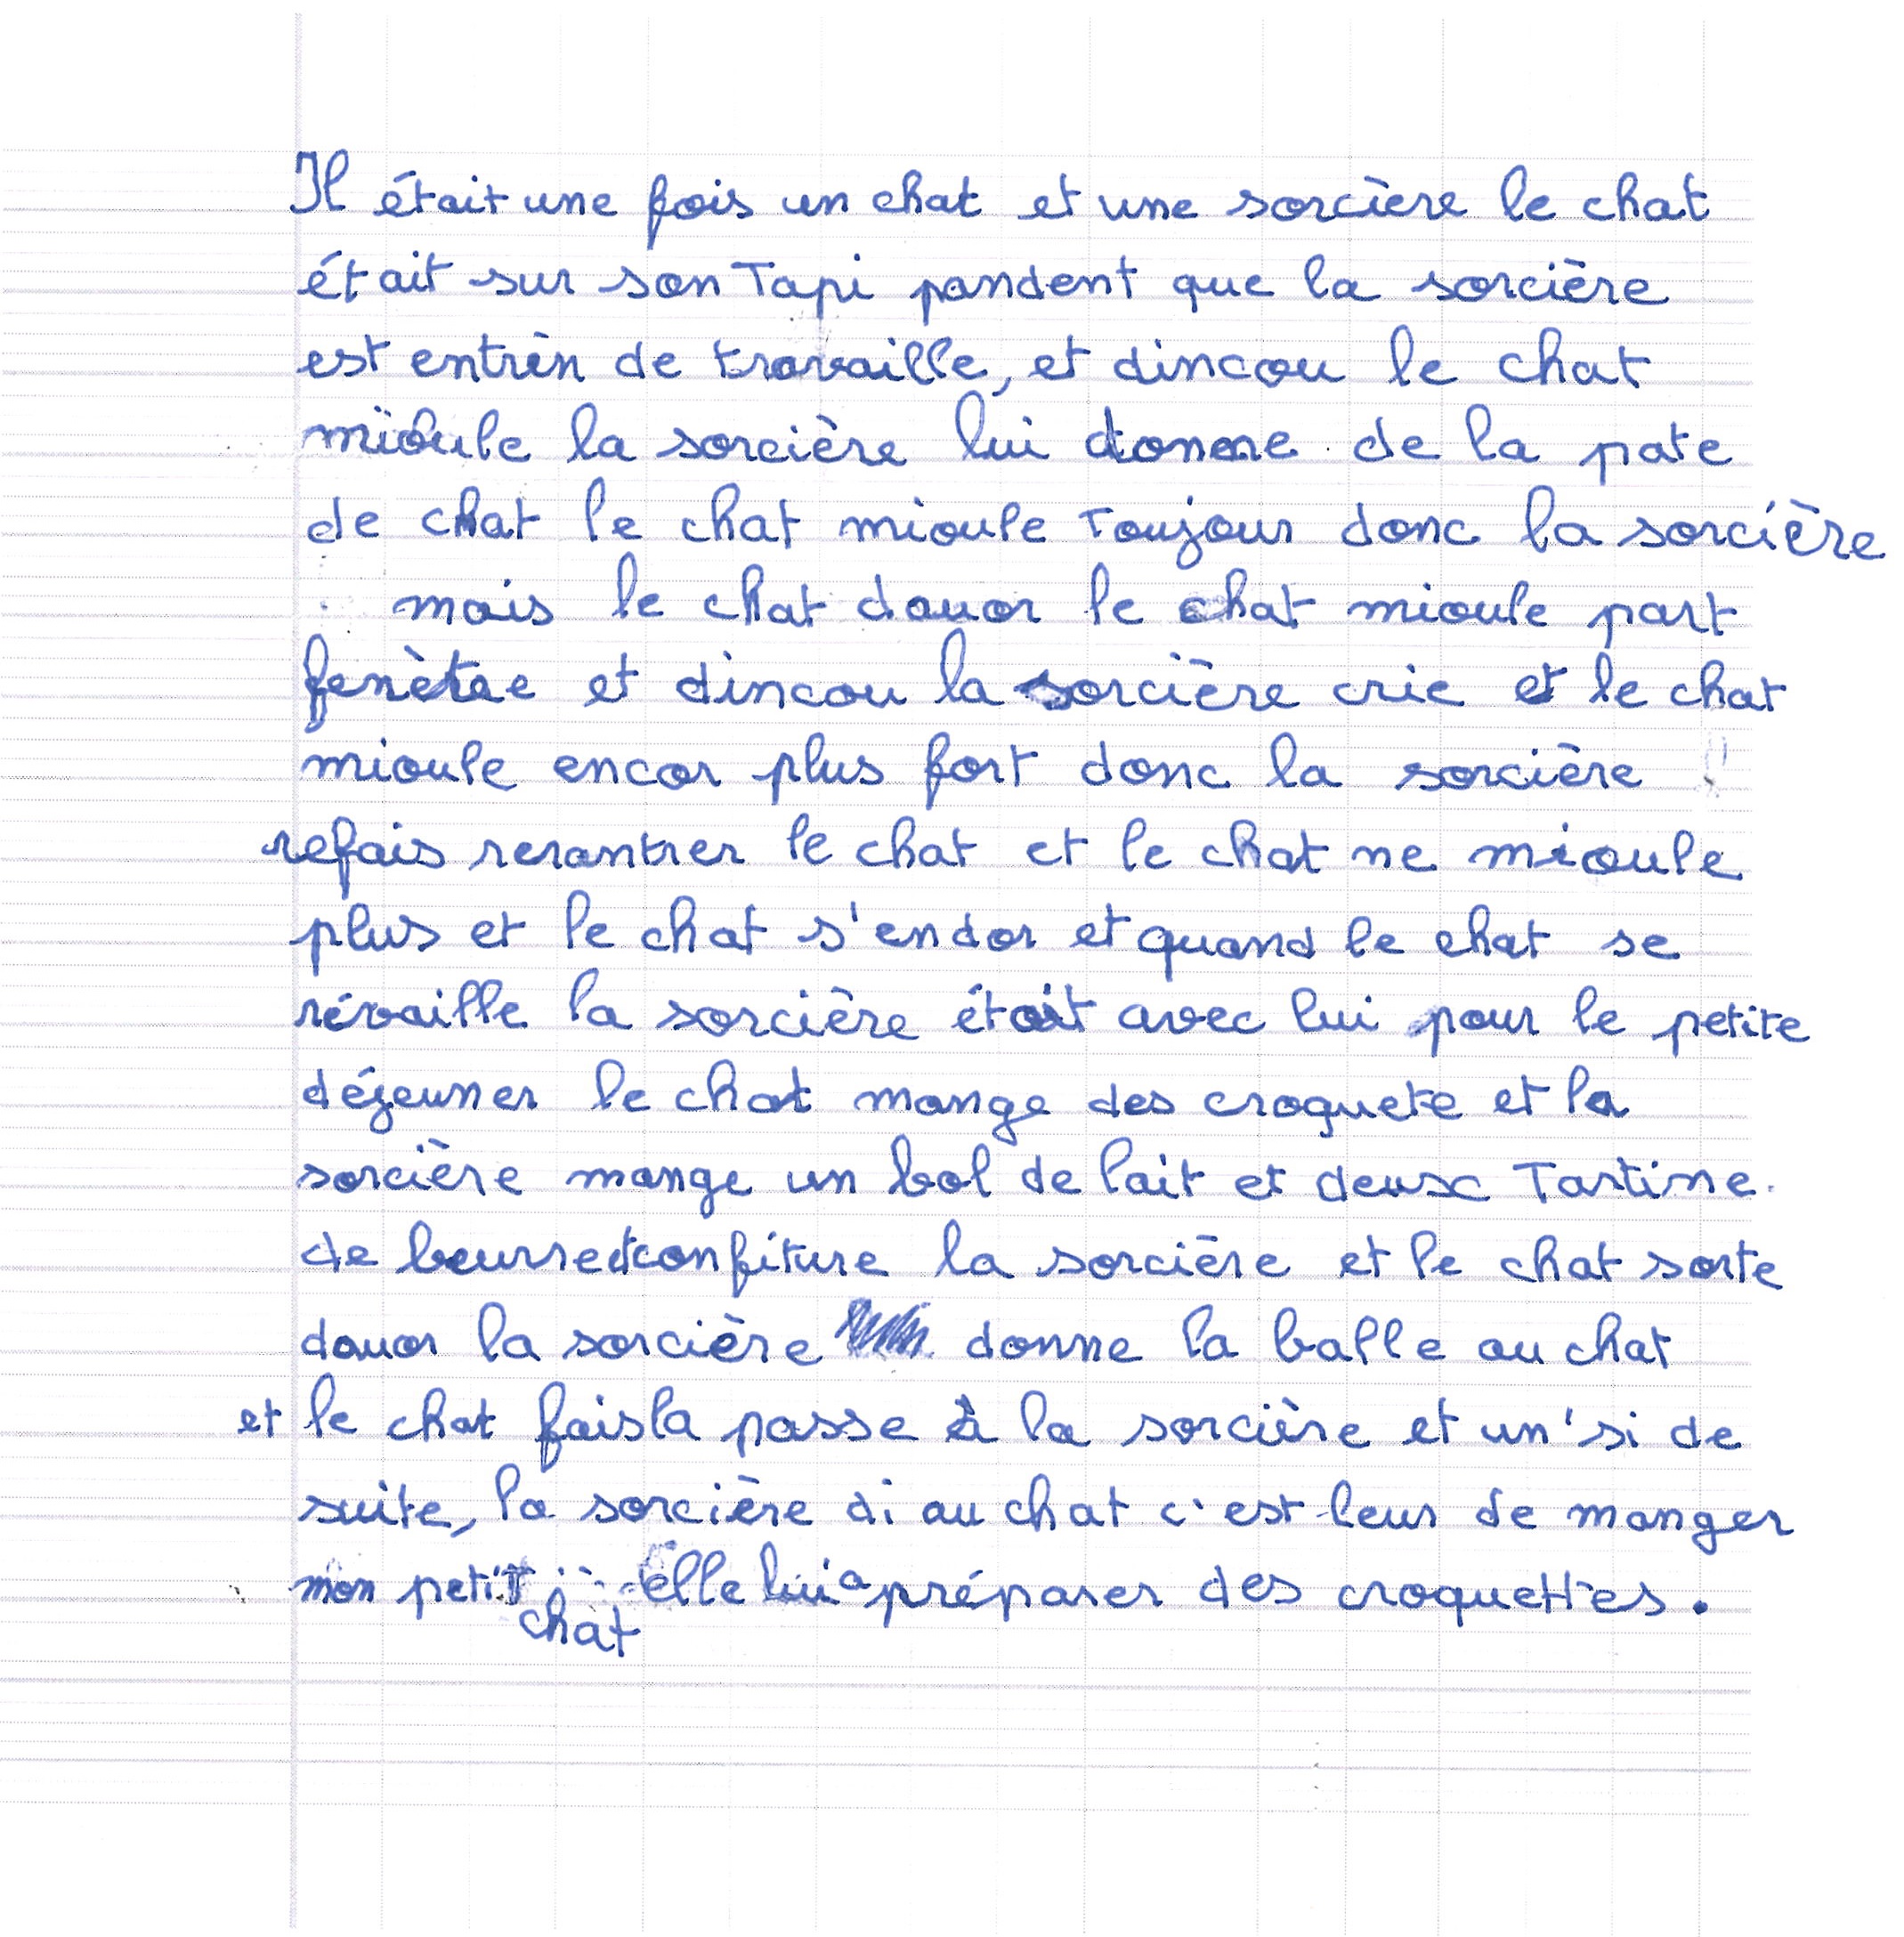 Il était une fois un chat et une sorcière le chat
était sur son Tapi pandent que la sorcière
est entrèn de travaille, et dincou le chat
mioule la sorcière lui donne de la pate
de chat le chat mioule Toujour donc la sorcière
mais le chat dauor le chat mioule part
fenètre et dincou la sorcière crie et le chat
mioule encor plus fort donc la sorcière
refais rerantrer le chat et le chat ne mioule
plus et le chat s'endor et quand le chat se
révaille la sorcière était avec lui pour le petite
déjeuner le chat mange des croquete et la
sorcière mange un bol de lait et deux Tartine.
de beurre et confiture la sorcière et le chat sorte
dauor la sorcière donne la balle au chat
et le chat fais la passe à la sorcière et un'si de
suite, la sorcière di au chat c'est leur de manger
mon petit chat elle lui a préparer des croquettes.